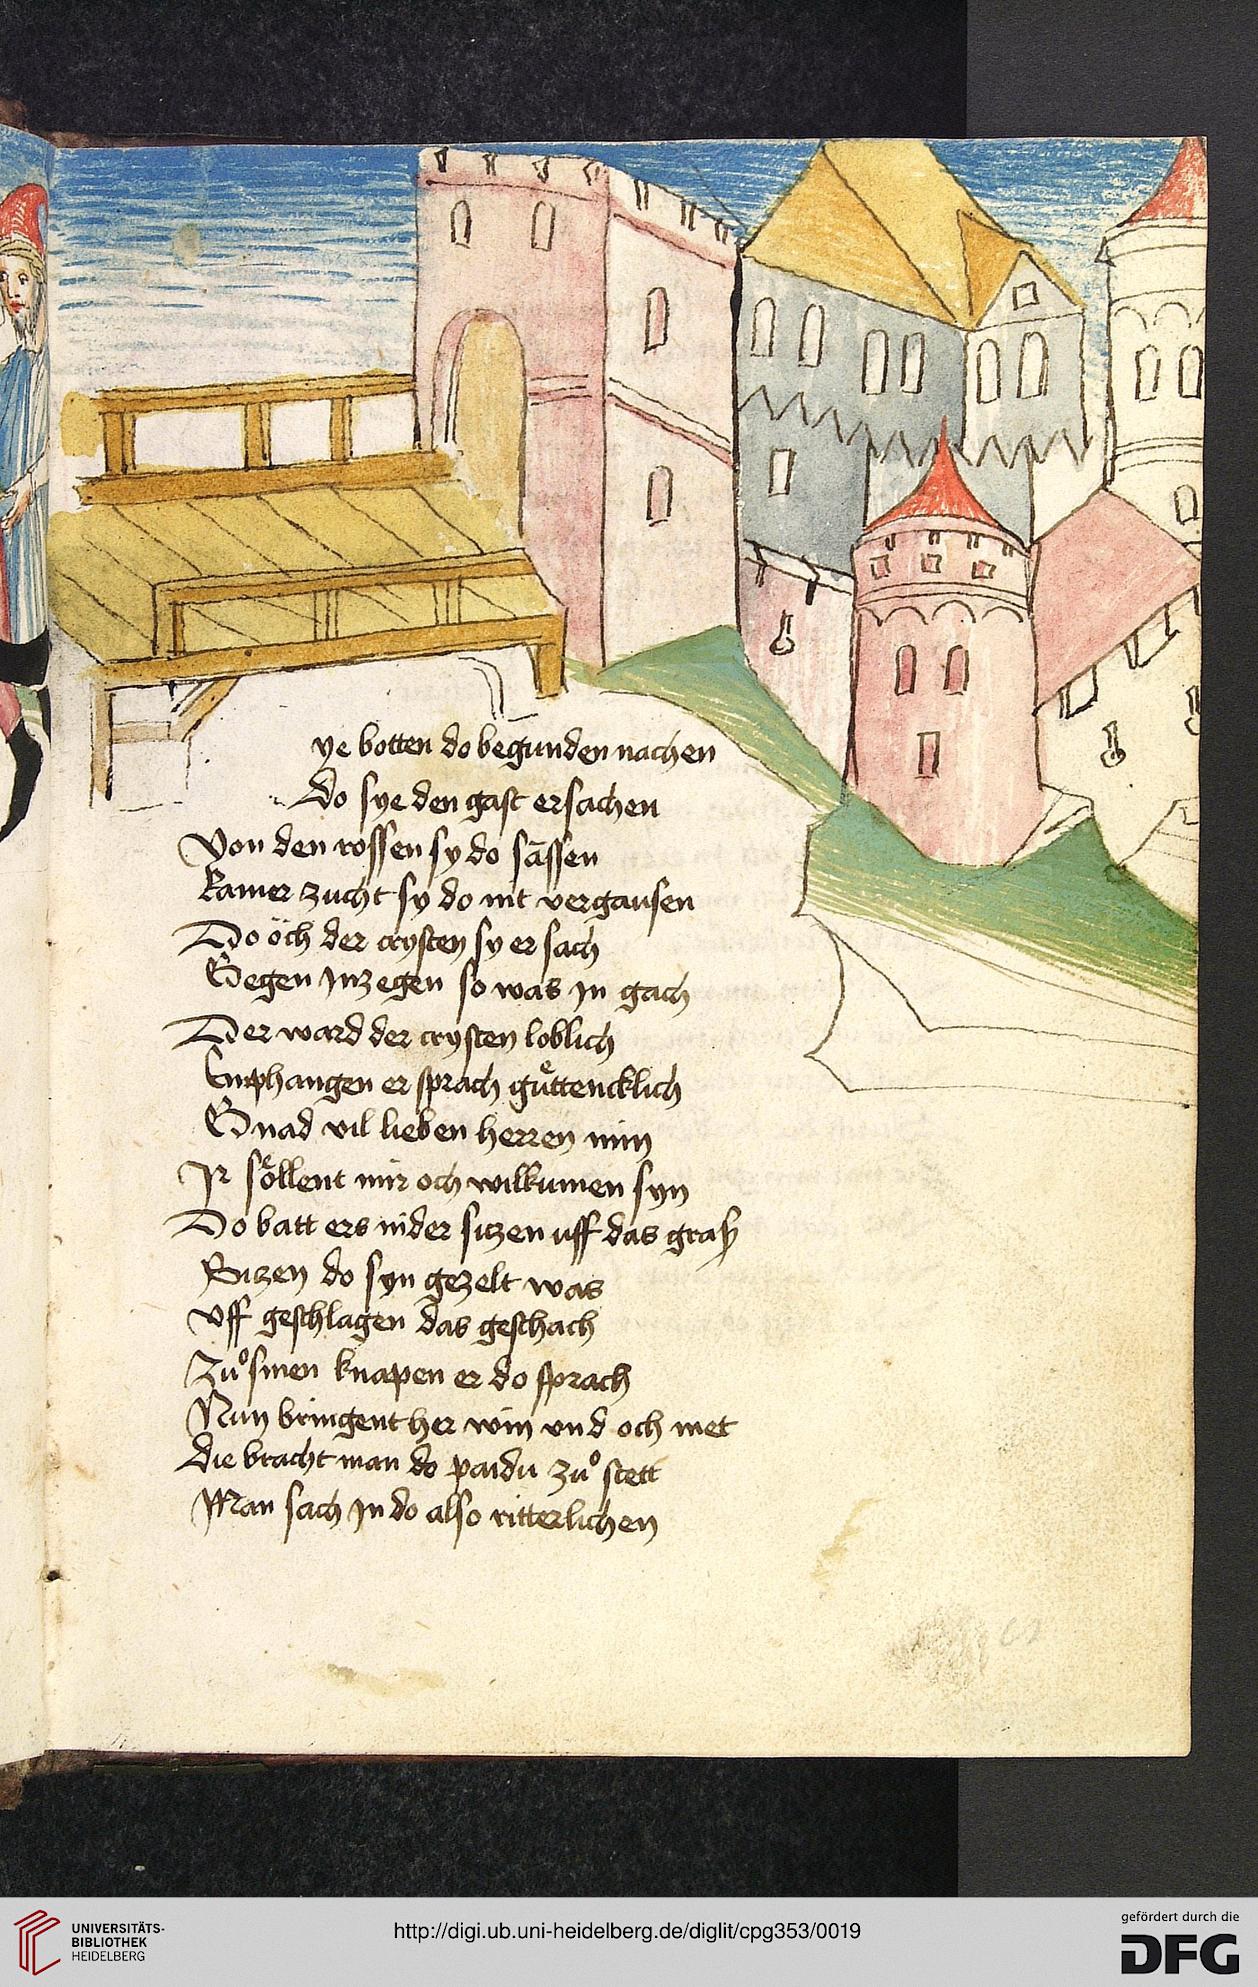 ye botten do begunden nachen
Do sye den gast ersachen
Von den rossen sy do sässen
Kainer zucht sy do nit vergausen
Do öch der crysten sy er sach
Gegen Inzegen so was In gach
Der ward der crysten loblich
Emphangen er sprach guͤttencklich
Gnad vil lieben herren min
Ir soͤllent mir och wilkumen syn
Do batt ers nider sitzen uff das graß
Bitzen do syn gezelt was
Uff geschlagen das geschach
Zuͦ sinen knapen er do sprach
Nun bringent her win vnd och met
Die bracht man do paidu zuͦ stett
Man sach In do also ritterlichen
UNIVERSITÄTS-
BIBLIOTHEK
HEIDELBERG
http://digi.ub.uni-heidelberg.de/diglit/cpg353/0019
gefördert durch die
DFG